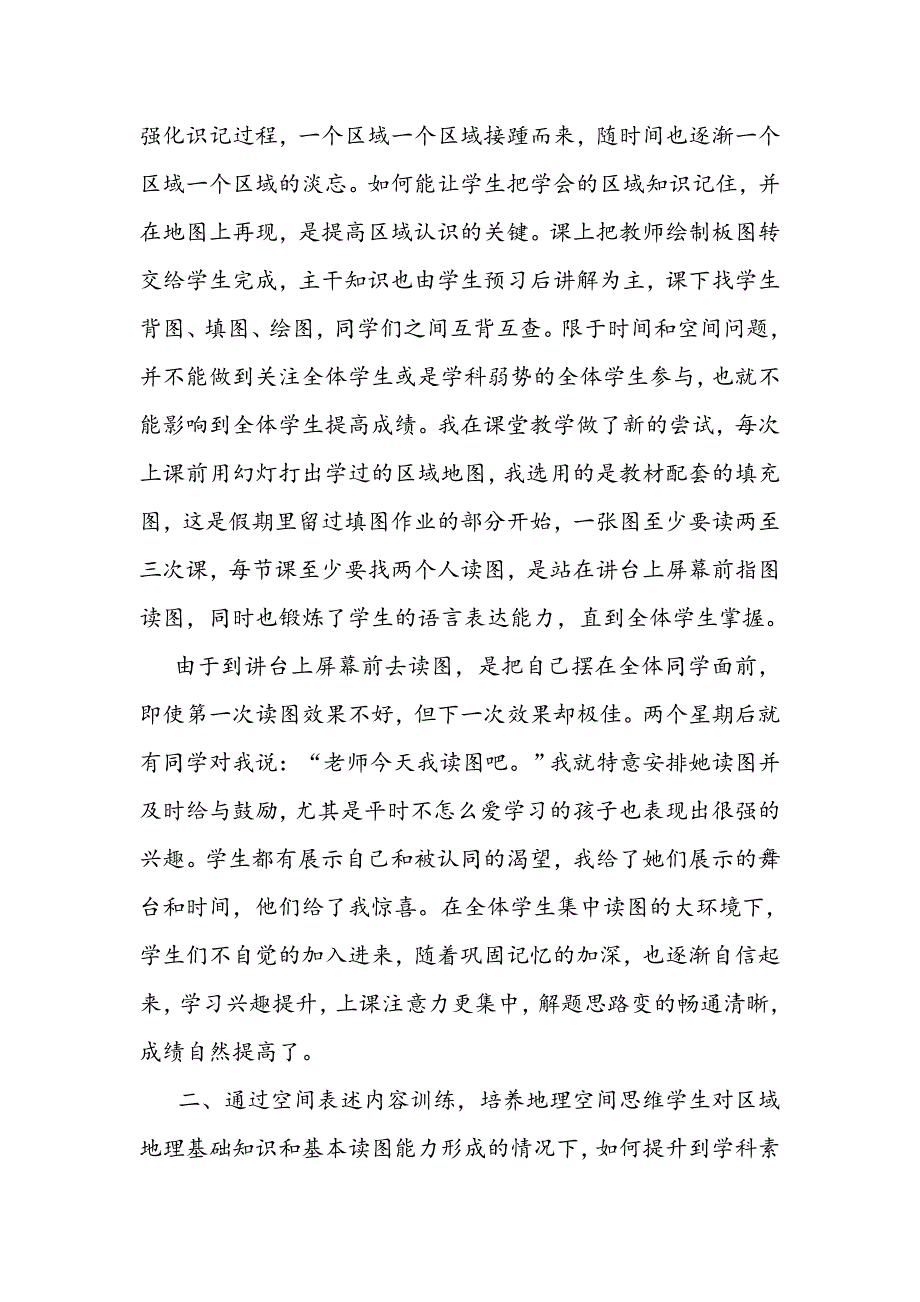 强化识记过程，一个区域一个区域接踵而来，随时间也逐渐一个
区域一个区域的淡忘。如何能让学生把学会的区域知识记住，并
在地图上再现，是提高区域认识的关键。课上把教师绘制板图转
交给学生完成，主干知识也由学生预习后讲解为主，课下找学生
背图、填图、绘图，同学们之间互背互查。限于时间和空间问题，
并不能做到关注全体学生或是学科弱势的全体学生参与，也就不
能影响到全体学生提高成绩。我在课堂教学做了新的尝试，每次
上课前用幻灯打出学过的区域地图，我选用的是教材配套的填充
图，这是假期里留过填图作业的部分开始，一张图至少要读两至
三次课，每节课至少要找两个人读图，是站在讲台上屏幕前指图
读图，同时也锻炼了学生的语言表达能力，直到全体学生掌握。
由于到讲台上屏幕前去读图，是把自己摆在全体同学面前，
即使第一次读图效果不好，但下一次效果却极佳。两个星期后就
有同学对我说：“老师今天我读图吧。”我就特意安排她读图并
及时给与鼓励，尤其是平时不怎么爱学习的孩子也表现出很强的
兴趣。学生都有展示自己和被认同的渴望，我给了她们展示的舞
台和时间，他们给了我惊喜。在全体学生集中读图的大环境下，
学生们不自觉的加入进来，随着巩固记忆的加深，也逐渐自信起
来，学习兴趣提升，上课注意力更集中，解题思路变的畅通清晰，
成绩自然提高了。
二、通过空间表述内容训练，培养地理空间思维学生对区域
地理基础知识和基本读图能力形成的情况下，如何提升到学科素